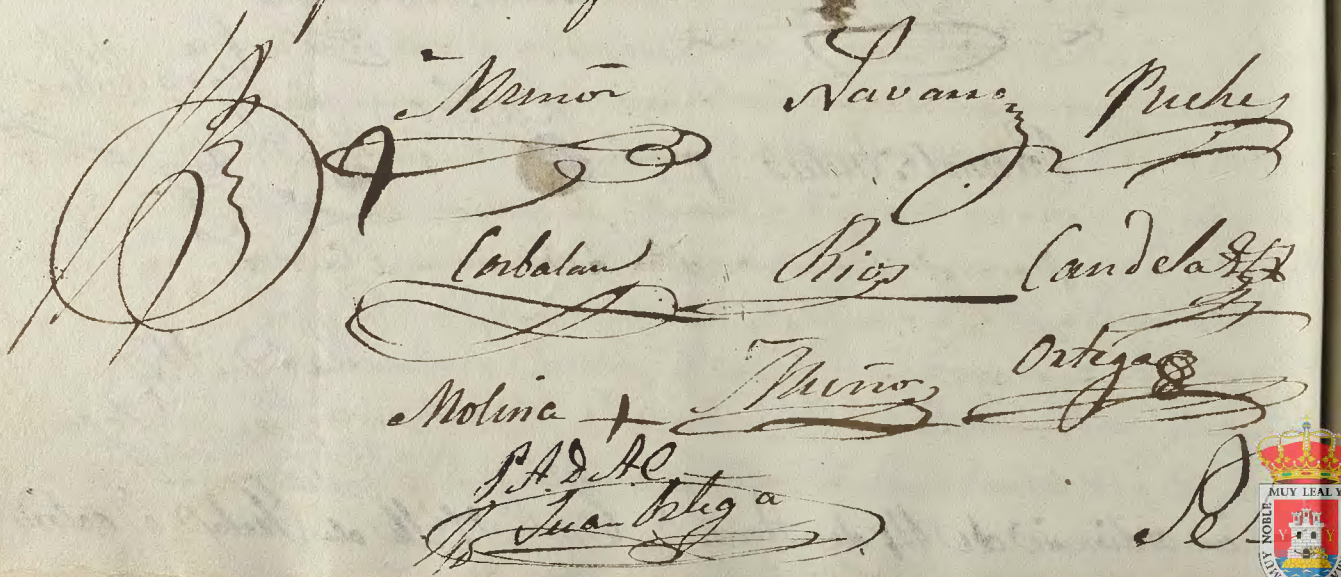 Muñoz Navarro Puche
Corbalan Rios Candela
Molina + Muñoz Ortega
P. A. D. A. C.
Juan Ortega
MUY NOBLE MUY LEAL Y
Y Y